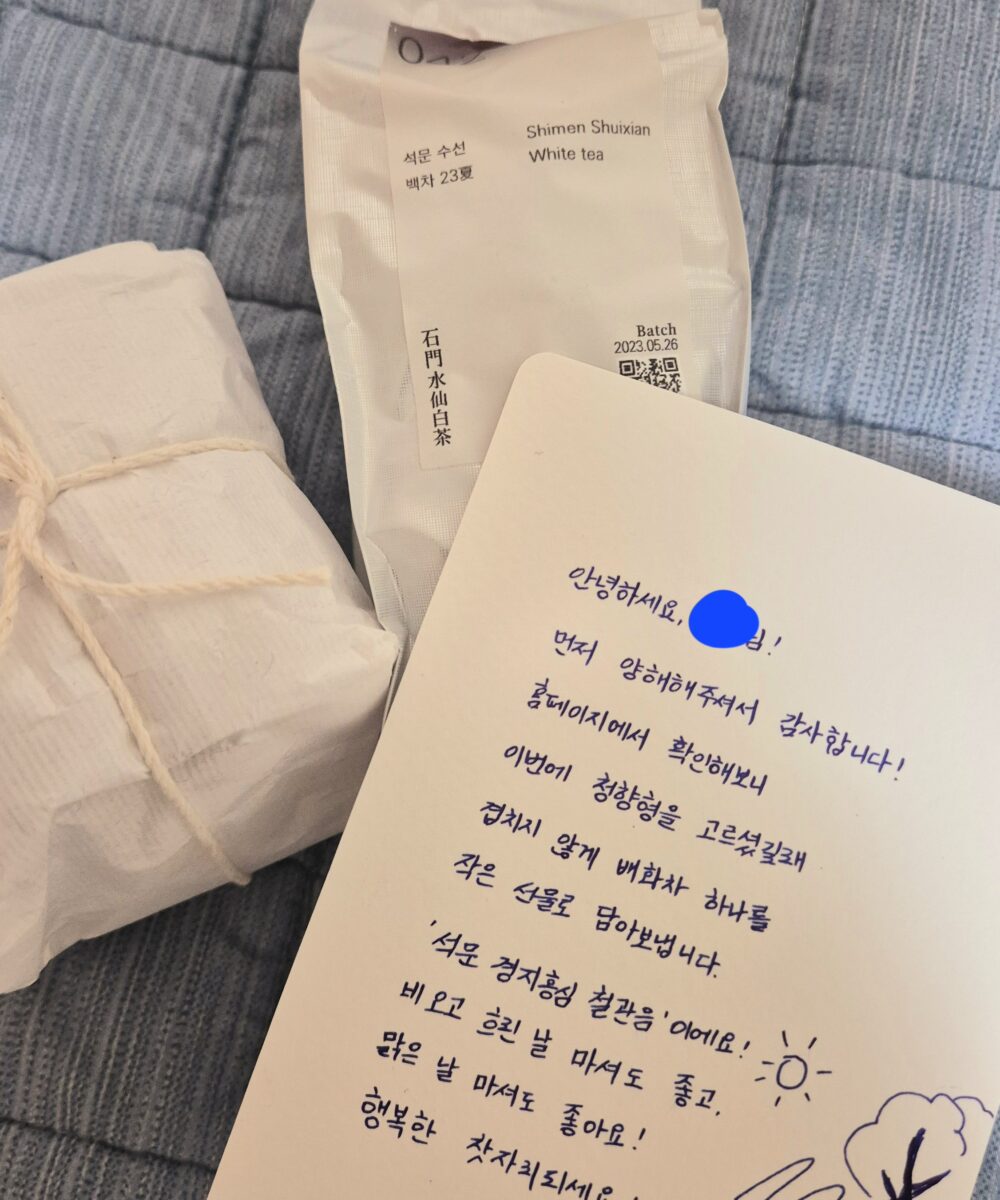 석문 수선
백차 23夏
Shimen Shuixian
White tea
石門水仙白茶
Batch
2023.05.26
안녕하세요, 님!
먼저 양해해주셔서 감사합니다!
홈페이지에서 확인해보니
이번에 청향형을 고르셨길래
겹치지 않게 배화차 하나를
작은 선물로 담아보냅니다.
'석문 경지홍심 철관음'이에요!
비오고 흐린 날 마셔도 좋고,
맑은 날 마셔도 좋아요!
행복한 찻자리되세요!